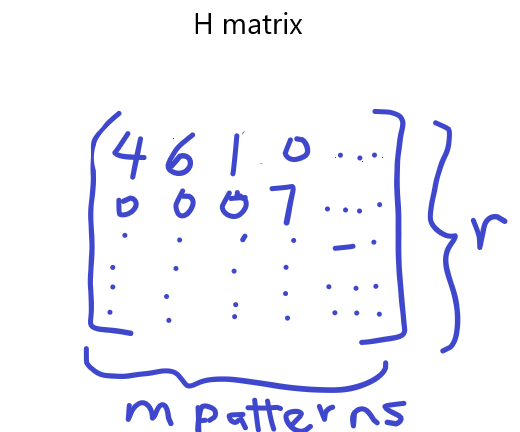 H matrix
4 6 1 0 ...
0 0 0 7 ....
r
m patterns